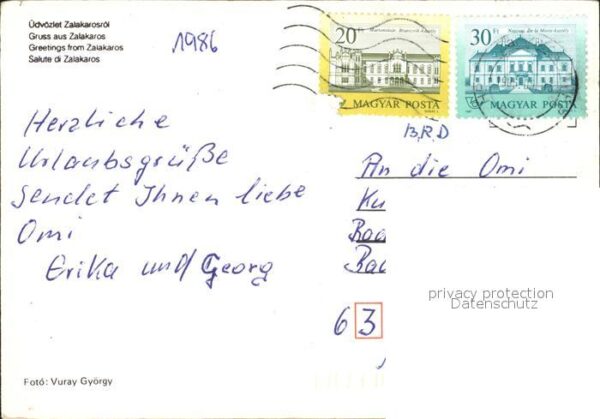 Üdvözlet Zalakarosról
Gruss aus Zalakaros
Greetings from Zalakaros
Salute di Zalakaros
1986
20
Ft
MAGYAR POSTA
30 Ft
MAGYAR POSTA
B.R.D
Herzliche
Urlaubsgrüße
sendet Ihnen liebe
Omi
Erika und Georg
An die Omi
Ku
Bad
Bad
privacy protection
Datenschutz
63
Fotó: Vuray György